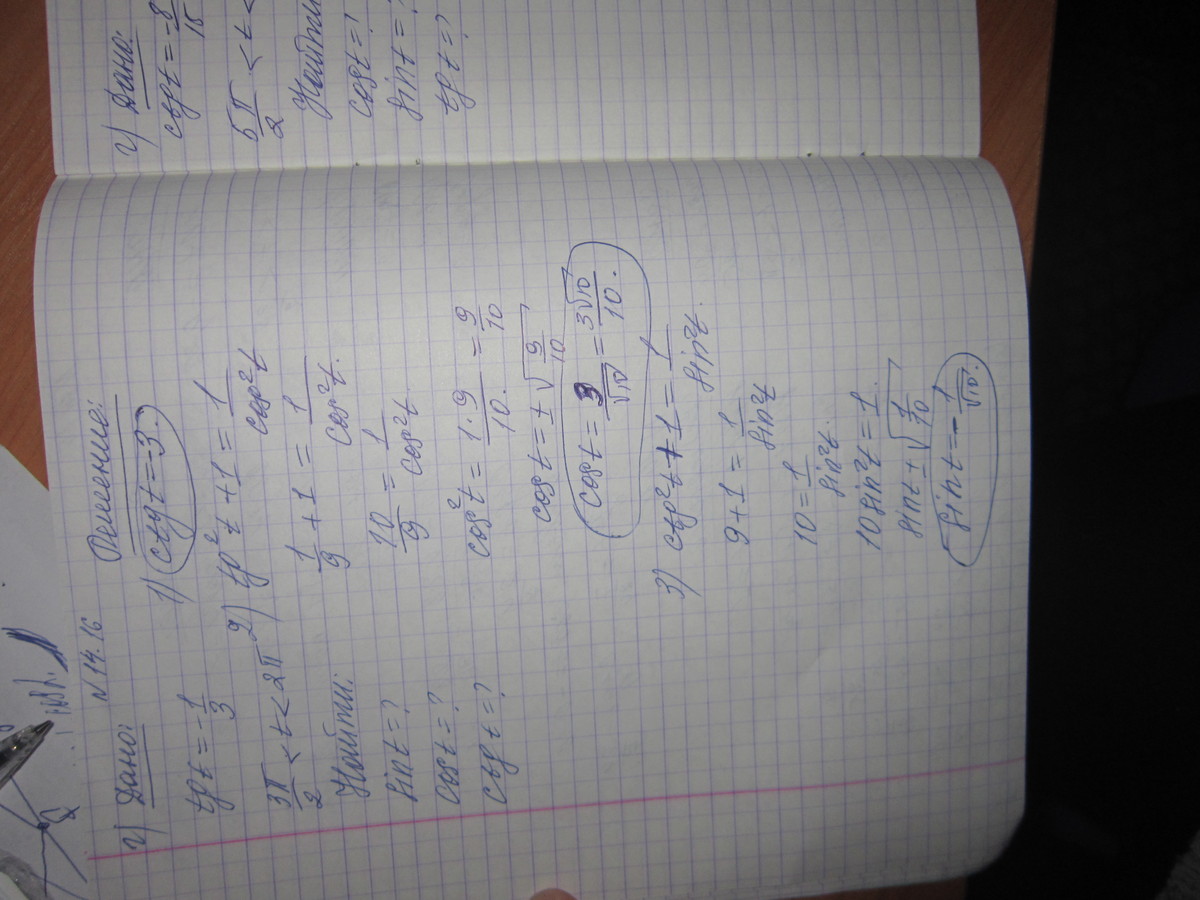 N 14.16
г) Дано:
tgt = -1/3
3π/2 < t < 2π
Найти:
sint = ?
cost = ?
ctgt = ?
Решение:
1) ctgt = -3.
2) tg²t + 1 = 1/cos²t
1/9 + 1 = 1/cos²t.
10/9 = 1/cos²t
cos²t = 1·9/10. = 9/10
cost = ± √9/10
cost = 3/√10 = 3√10/10.
3) ctg²t + 1 = 1/sin²t.
9 + 1 = 1/sin²t
10 = 1/sin²t.
10 sin²t = 1.
sint ± √1/10
sint = -1/√10.
г) Дано:
ctgt = -8/15
5π/2 < t <
Найти
cost = ?
sint = ?
tgt = ?